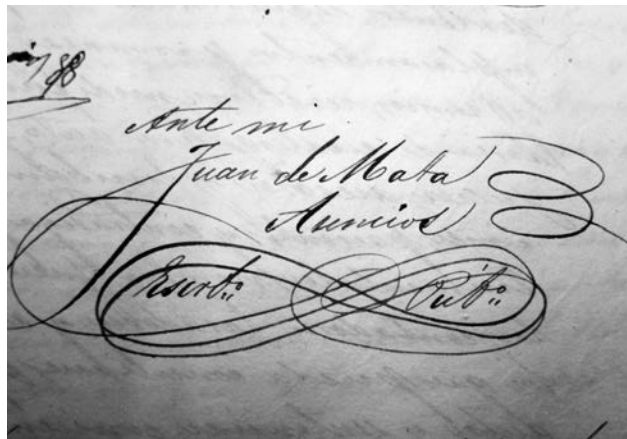 Ante mi
Juan de Mata
Asencios
Escrib.º Púb.º